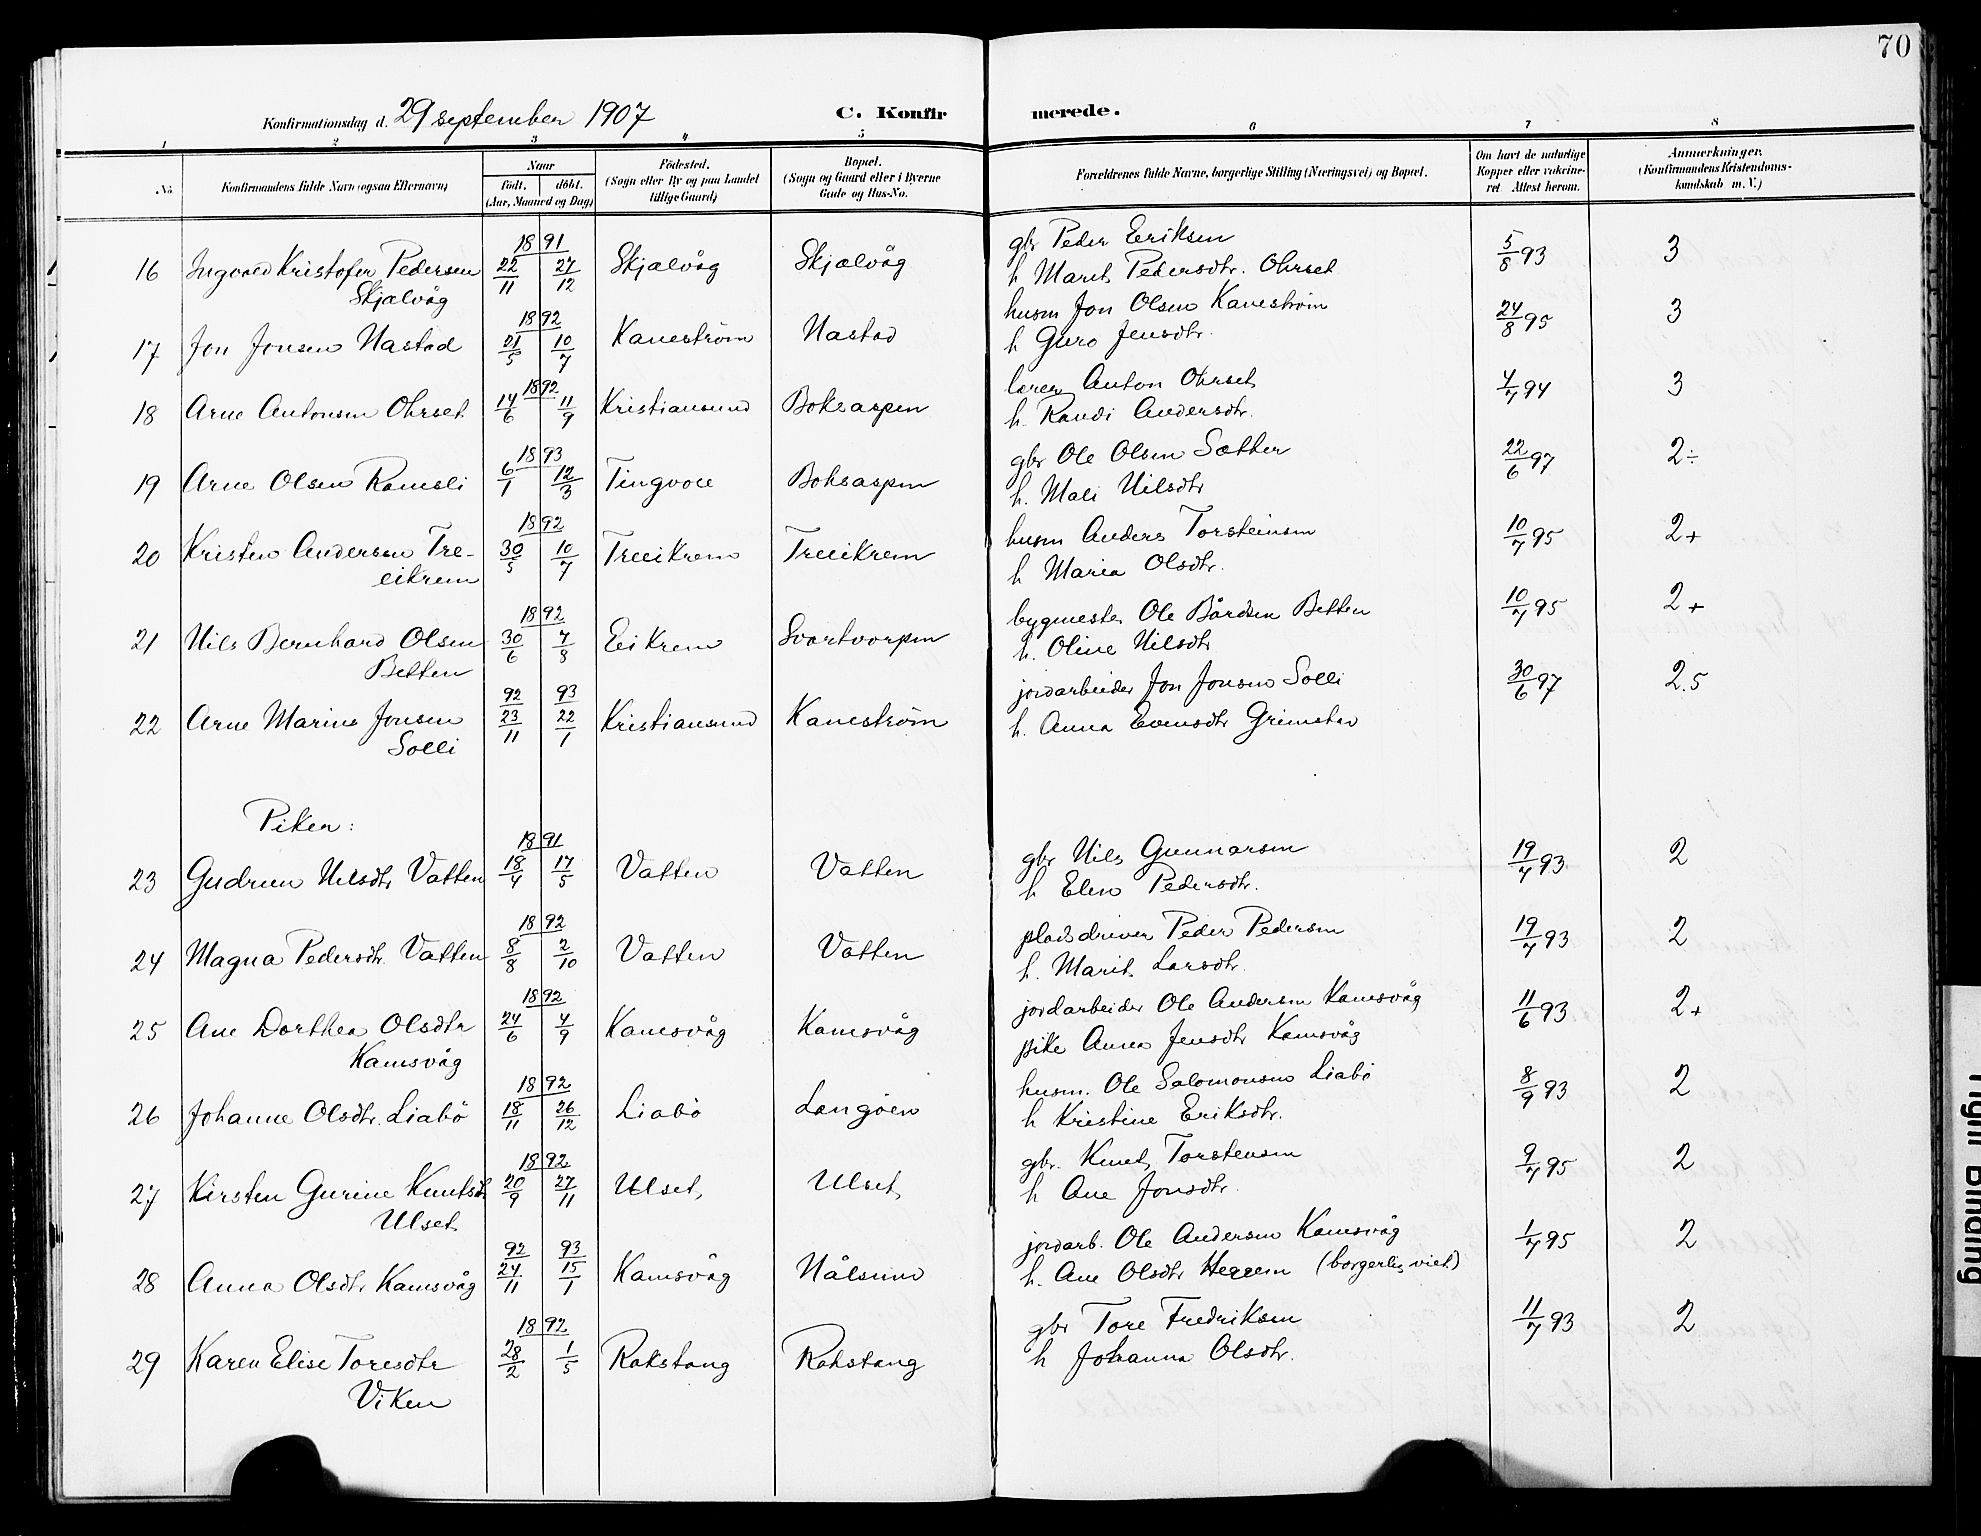 70
Konfirmationsdag d. 29 september 1907 C. Konfir merede.
1 2 3 4 5 6 7 8
No. Konfirmandens fulde Navn (ogsaa Efternavn) Naar födt. döbt. (Aar, Maaned og Dag) Födested. (Sogn eller By og paa Landet tillige Gaard) Bopæl. (Sogn og Gaard eller i Byerne Gade og Hus-No. Forældrenes fulde Navne, borgerlige Stilling (Næringsvei) og Bopæl. Om havt de naturlige Kopper eller vakcineret. Attest herom. Anmærkninger. (Konfirmandens Kristendomskundskab m. V.)
1891
16 Ingvald Kristofer Pedersen 22/11 27/12 Skjælvåg Skjælvåg gbr Peder Eriksen 5/8 93 3
Skjælvåg h Marit Pedersdtr. Ohrset
1892
17 Jon Jonsen Nastad 21/5 10/7 Kanestrøm Nastad husm Jon Olsen Kanestrøm 24/8 95 3
h Guro Jensdtr.
1892
18 Arne Antonsen Ohrset 14/6 11/9 Kristiansund Boksaspen lærer Anton Ohrset 4/7 94 3
h. Randi Andersdtr.
1893
19 Arne Olsen Ramsli 6/1 12/3 Tingvoll Boksaspen gbr Ole Olsen Sæther 22/6 97 2÷
h. Mali Nilsdtr
1892
20 Kristen Andersen Tre- 30/5 10/7 Treeikrem Treeikrem husm Anders Torsteinsen 10/7 95 2+
eikrem h Maria Olsdtr.
1892
21 Nils Bernhard Olsen 30/6 7/8 Eikrem Svartvorpen bygmester Ole Bårdsen Betten 10/7 95 2+
Betten h. Oline Nilsdtr
92 93
22 Arne Marius Jonsen 23/11 22/1 Kristiansund Kanestrøm jordarbeider Jon Jonsen Solli 30/6 97 2.5
Solli h. Anna Evensdtr Grimstad
Piker:
1891
23 Gudrun Nilsdtr Vatten 18/4 17/5 Vatten Vatten gbr Nils Gunnarsen 19/7 93 2
h Elen Pedersdtr.
1892
24 Magna Pedersdtr. Vatten 8/8 2/10 Vatten Vatten pladsdriver Peder Pedersen 19/7 93 2
h. Marit Larsdtr.
1892
25 Ane Dorthea Olsdtr 24/6 4/9 Kamsvåg Kamsvåg jordarbeider Ole Andersen Kamsvåg 11/6 93 2+
Kamsvåg pike Anna Jensdtr Kamsvåg
1892
26 Johanne Olsdtr. Liabö 18/11 26/12 Liabö Langöen husm. Ole Salomonsen Liabö 8/9 93 2
h Kristine Eriksdtr.
1892
27 Kirsten Gurine Knutsdt 20/9 27/11 Ulset Ulset gbr. Knut Torstensen 9/7 95 2
Ulset h Ane Jonsdtr.
92 93
28 Anna Olsdtr Kamsvåg 24/11 15/1 Kamsvåg Nålsund jordarb. Ole Andersen Kamsvåg 1/7 95 2
h. Ane Olsdtr Heggem (borgerlig viet)
1892
29 Karen Elise Toresdtr 28/2 1/5 Rakstang Rakstang gbr Tore Fredriksen 11/7 93 2
Viken h Johanna Olsdtr.
Tight Binding